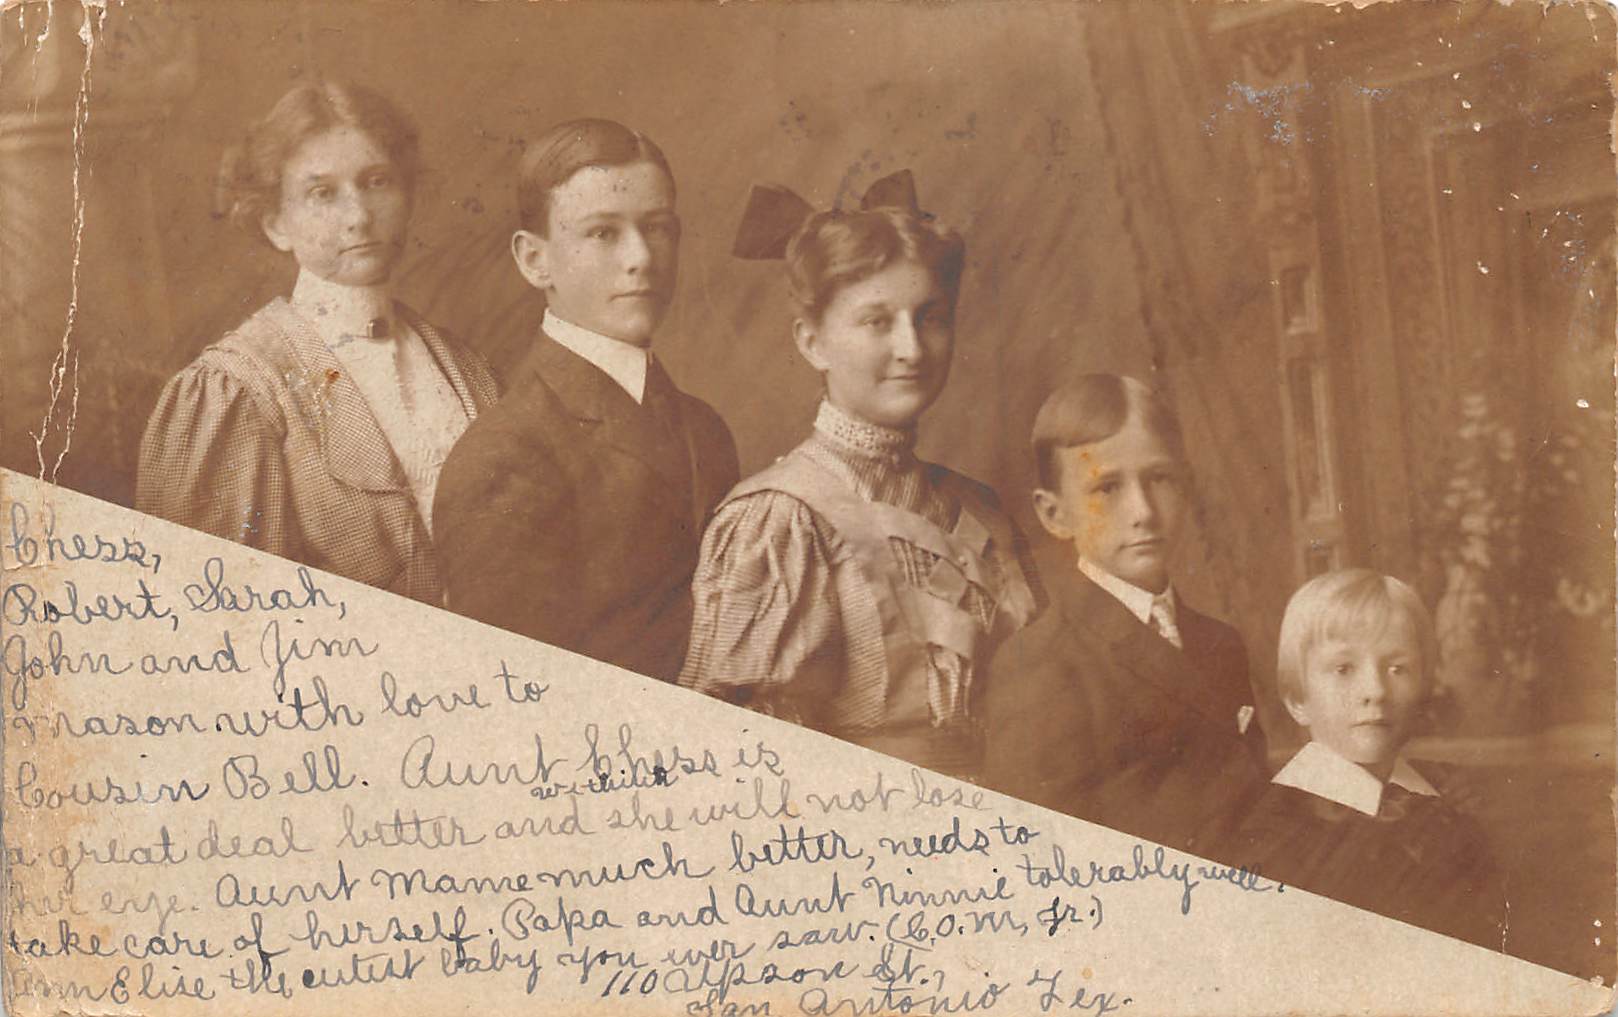 Chess,
Robert, Sarah,
John and Jim
Mason with love to
Cousin Bell. Aunt Chess is
a great deal better and she will not lose
her eye. Aunt Mame much better, needs to
take care of herself. Papa and Aunt Ninnie tolerably well.
Ann Elise the cutest baby you ever saw. (C.O.M, Jr.)
110 Upson St.,
San Antonio Tex.